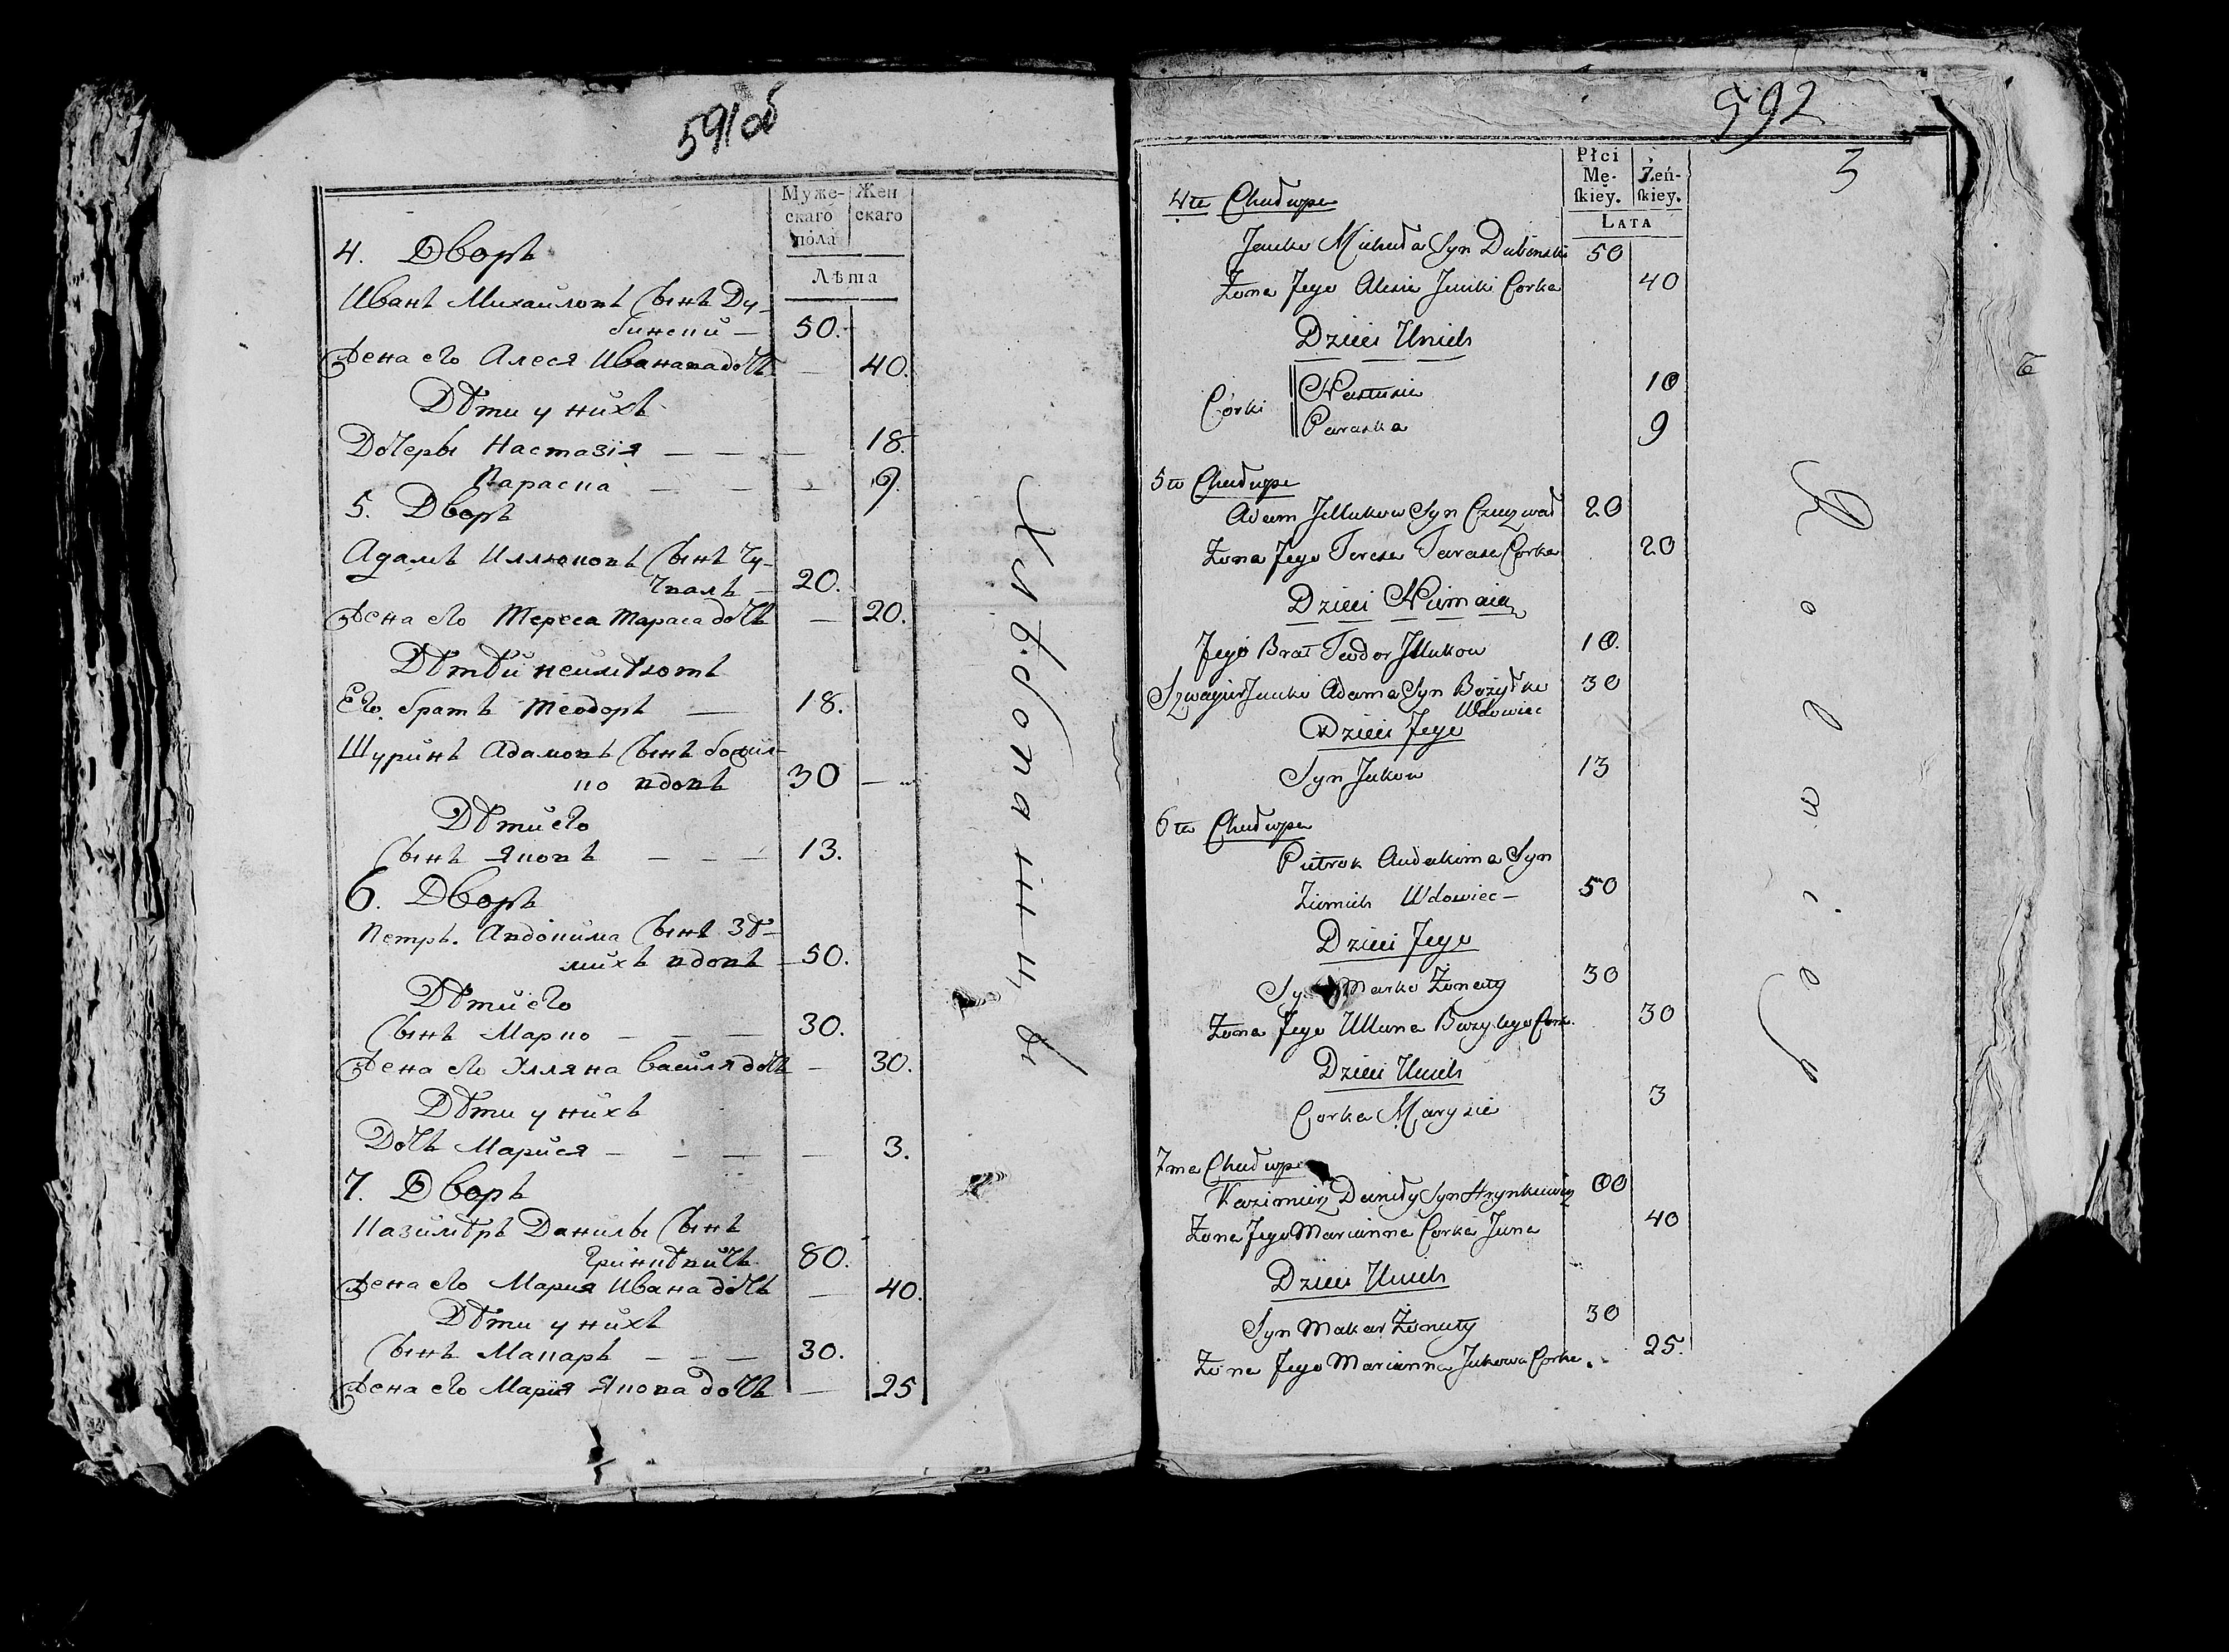 591об
Муже-
скаго
пола
Жен
скаго
Лѣта
4. Дворъ
Иванъ Михайловъ Сынъ Ду-
бински — 50.
Жена его Алеся Иванава дочь — 40.
Дѣти у нихъ
Дочеры Настазія — — — 18.
Параска — — — 9.
5. Дворъ
Адамъ Иллюковъ Сынъ Чу-
20.
Жена его Тереса Тараса дочь — 20.
Дѣтѣй неимѣютъ
Его братъ Теодоръ — 18.
Шуринъ Адамовъ Сынъ
вдовъ 30 —
Дѣти его
Сынъ Яковъ — — — 13.
6. Дворъ
Петръ Авдокима Сынъ Зѣ-
михъ вдовъ — 50.
Дѣти его
Сынъ Марко — — — 30.
Жена его Улляна Василя дочь — 30.
Дѣти у нихъ
Дочь Марися — — — — 3.
7. Дворъ
Казимѣръ Данилы Сынъ
Гринкѣвичь 80.
Жена его Мария Ивана дочь — 40.
Дѣти у нихъ
Сынъ Макаръ — — — 30.
Жена его Марія Якова дочь — 25
592
3
Płci
Mę-
ſkiey.
Żeń-
ſkiey.
LATA
4ta Chałupa
Janko Michała Syn Dubinski 50
Żona Jego Alesia Janki Corka 40
Dzieci Unich
Córki
Nastusia 10
Paraska 9
5ta Chałupa
Adam Jllukow Syn 20
Żona Jego Teresa Tarasa Corka 20
Dzieci Niemaią
Jego Brat Teodor Jllukow 10.
Szwagier Janko Adama Syn 30
Wdowiec
Dzieci Jego
Syn Jakow 13
6ta Chałupa
Pietrok Audakima Syn
Ziemich Wdowiec — 50
Dzieci Jego
Syn Marko Żonaty 30
Żona Jego Ullana Bazylego Cork. 30
Dzieci Unich
Corka Marysia 3
7ma Chałupa
Kazimierz Daniły Syn Hrynkiewicz 80
Żona Jego Marianna Corka Jana 40
Dzieci Unich
Syn Makar Żonaty 30
Żona Jego Marianna Jakowa Corka. 25.